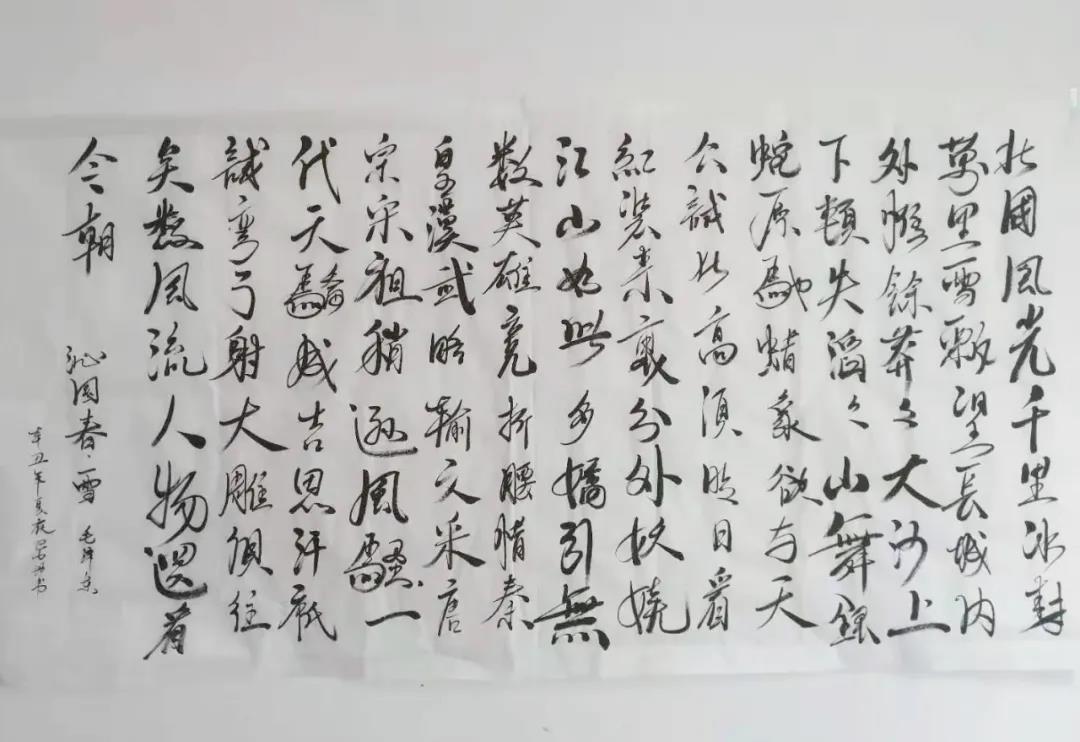 北國風光千里冰封
萬里雪飄望長城内
外惟餘莽々大河上
下頓失滔々山舞銀
蛇原馳蜡象欲与天
公試比高須晴日看
紅裝素裹分外妖嬈
江山如此多嬌引無
数英雄竞折腰惜秦
皇漢武略輸文采唐
宗宋祖稍遜風騷一
代天驕成吉思汗祇
識弯弓射大雕俱往
矣数風流人物還看
今朝
沁园春·雪 毛泽东
辛丑年夏夜书